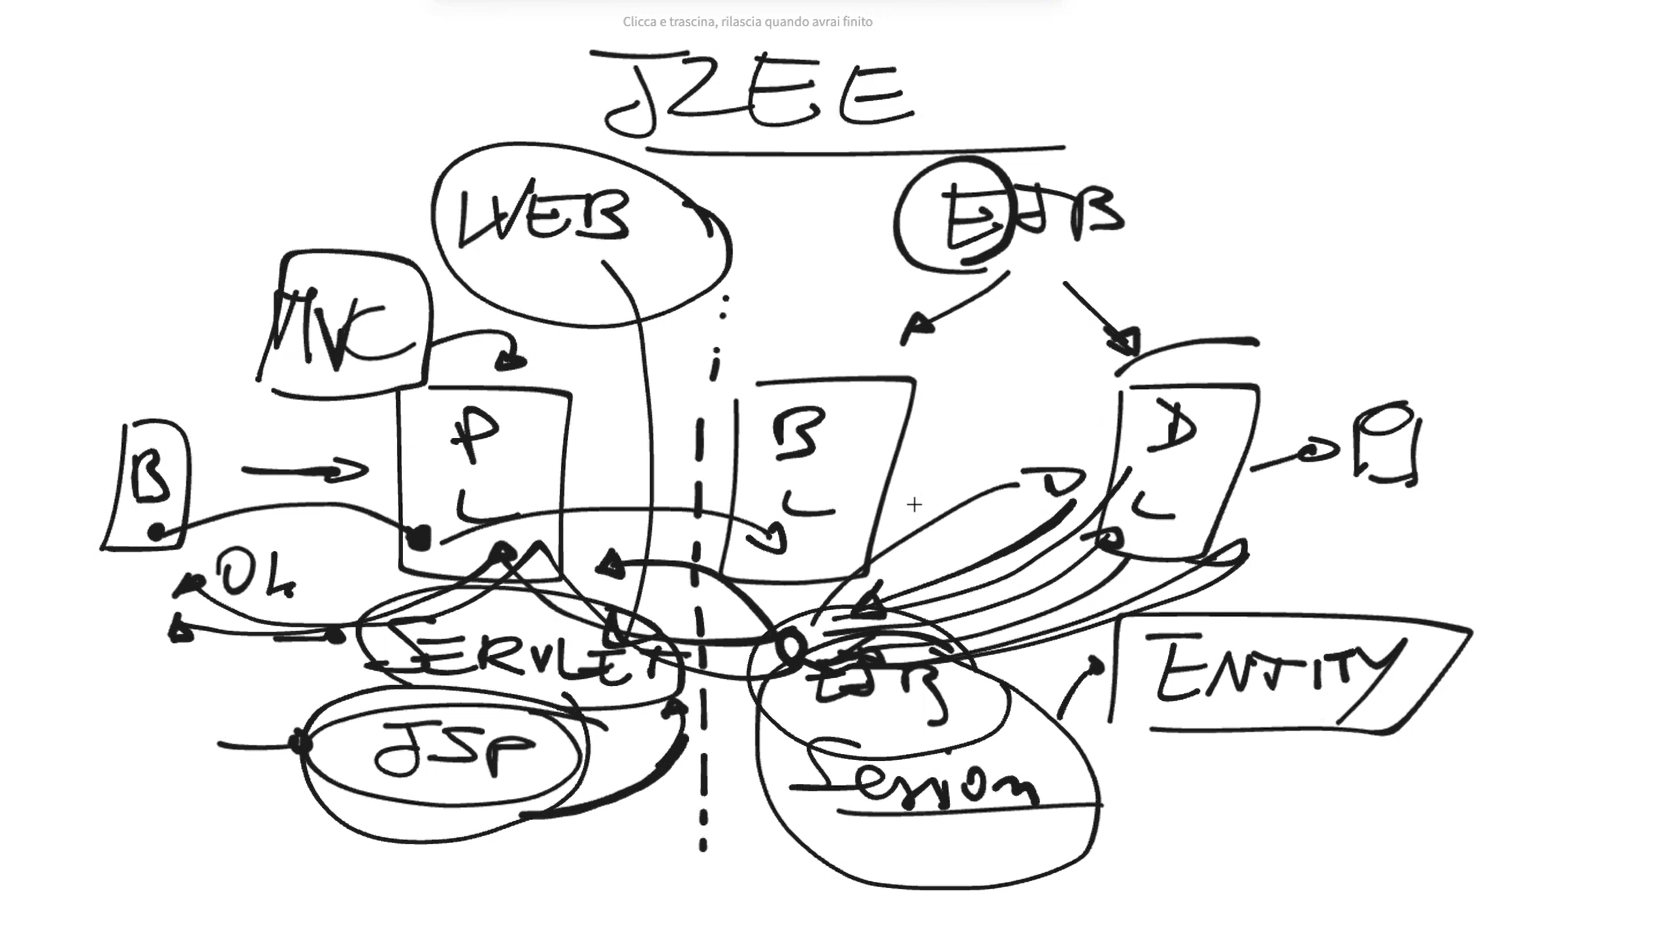 Clicca e trascina, rilascia quando avrai finito
J2EE
WEB
EJB
MVC
P
L
B
L
D
L
B
OK
SERVLET
JSP
EJB
Session
ENTITY